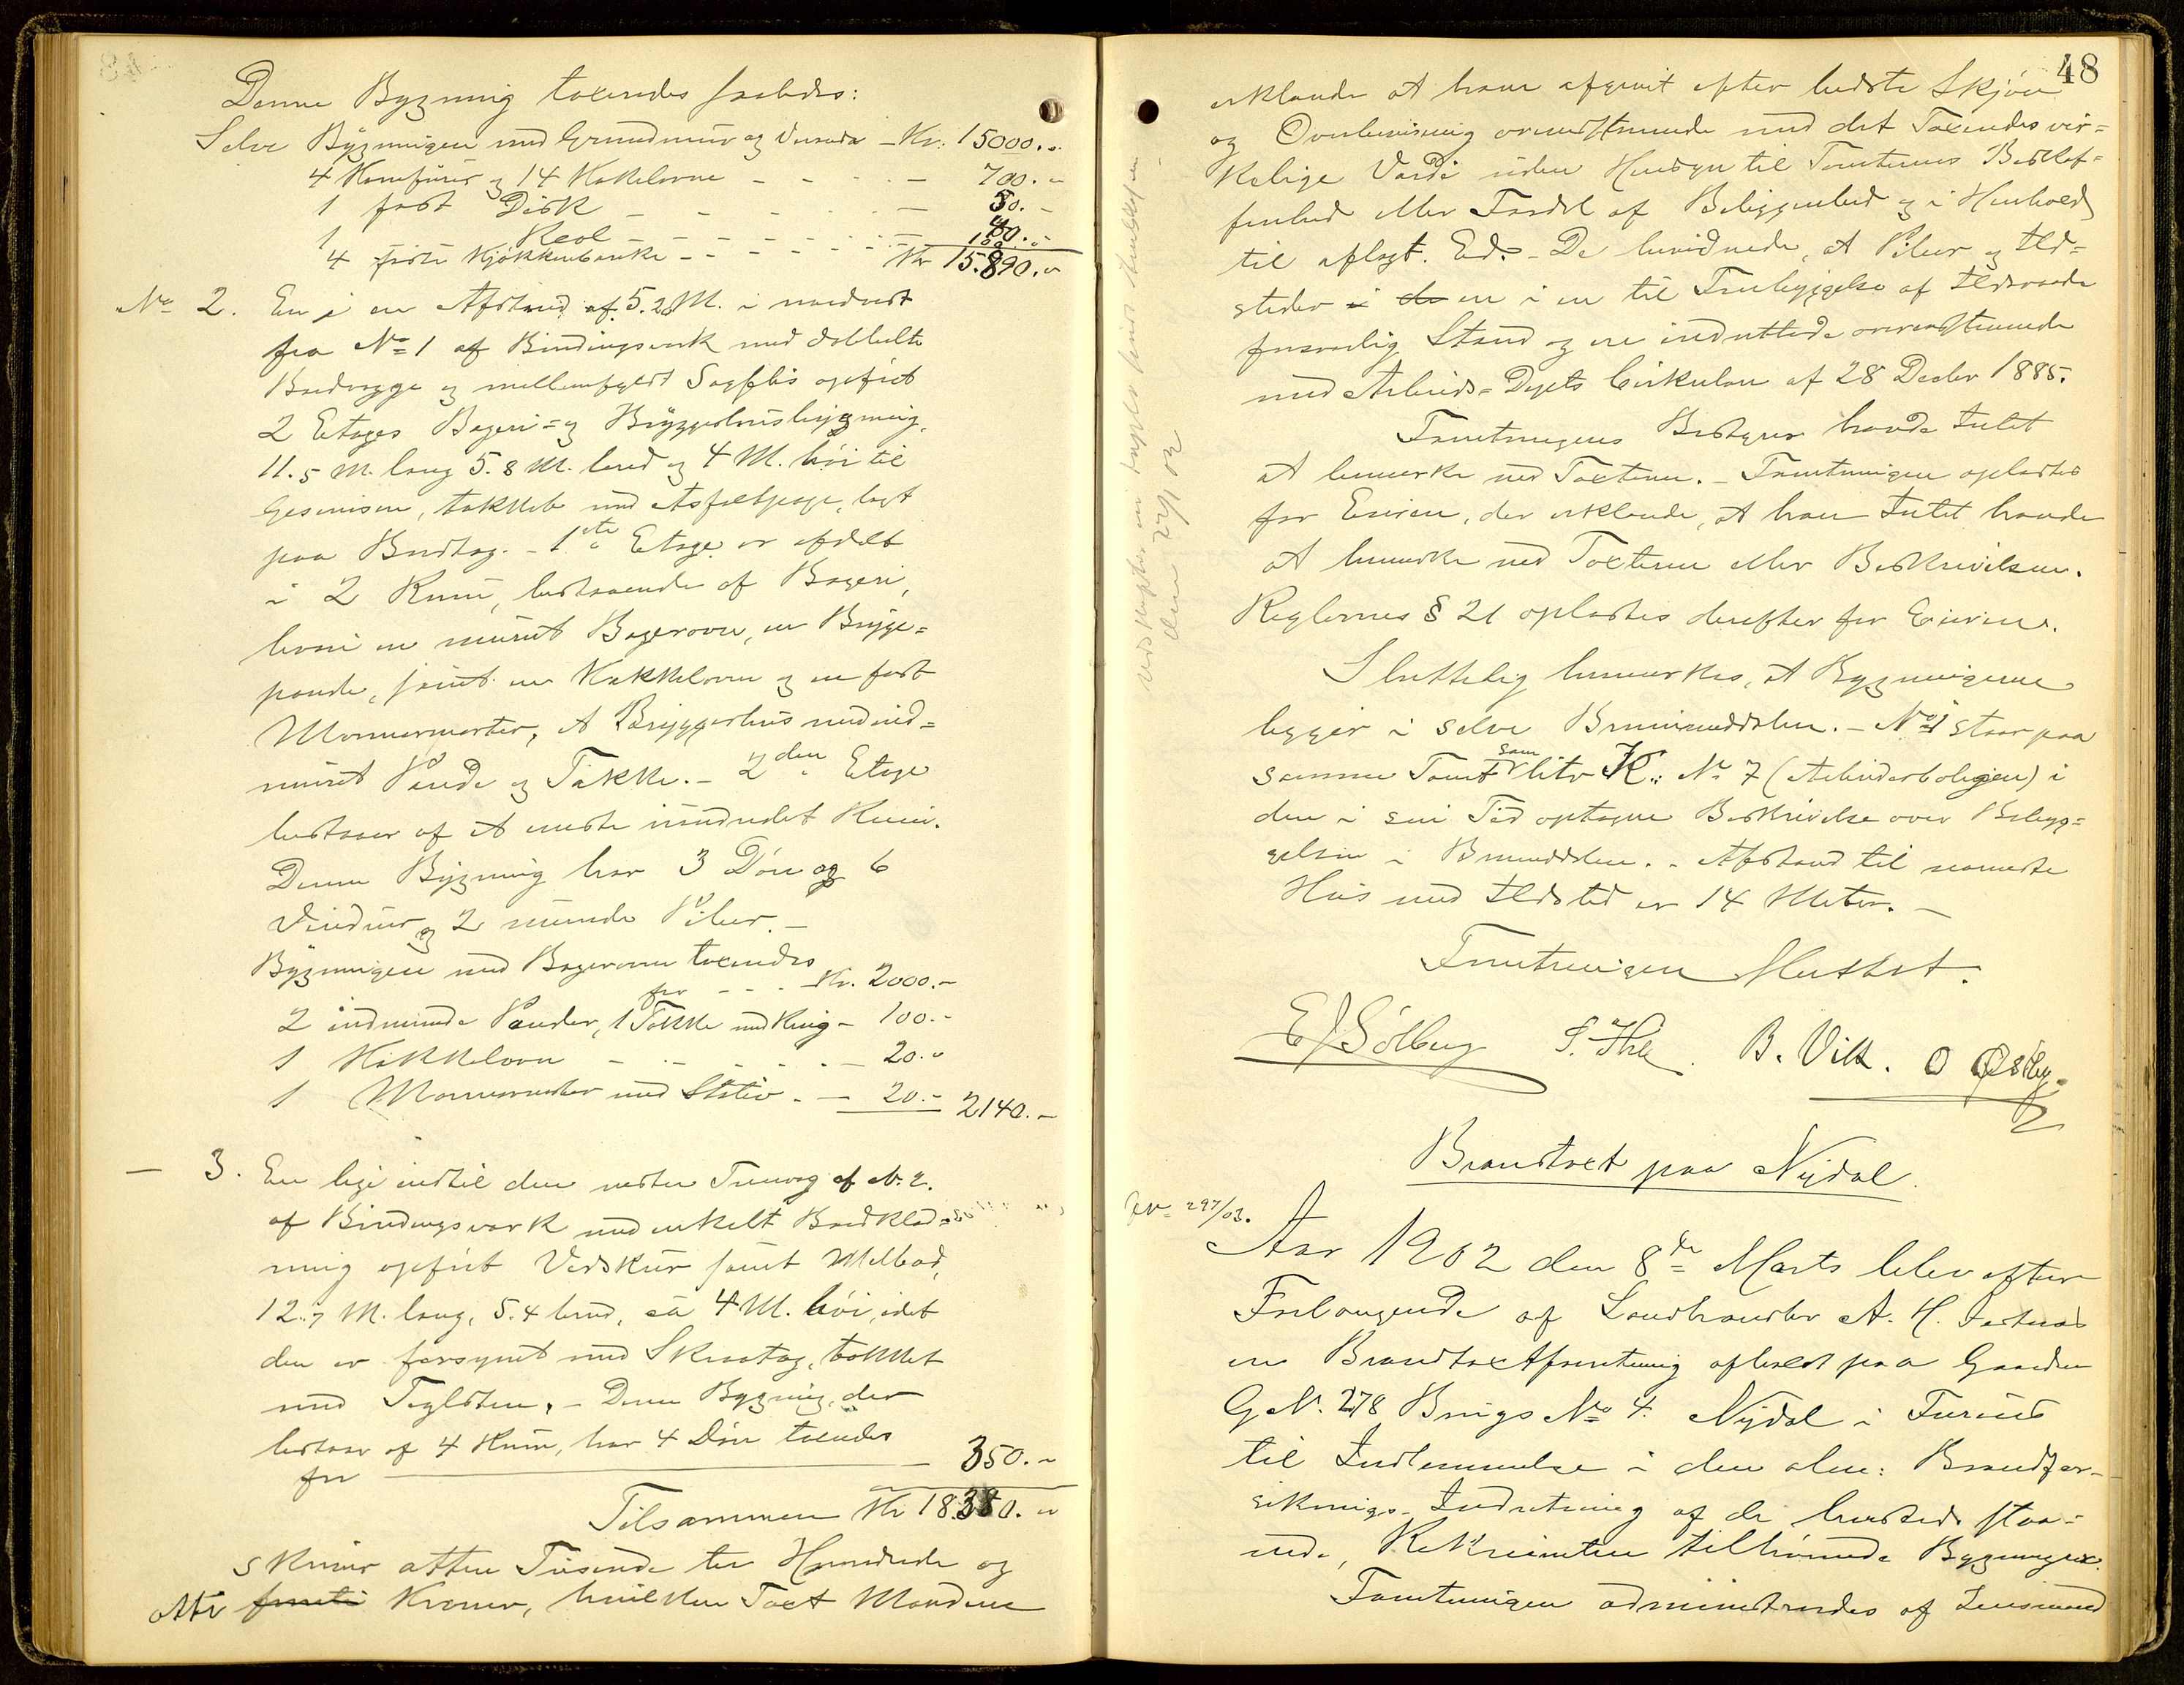 Denne Bygning taxeredes saaledes:
Selve Bygningen med Grundmur og Veranda - Kr. 15000.-
4 Komfurer og 14 Kakelovne - - - - 700.-
1 fast Disk - - - - 50.-
1 Reol - - - - - - 40.-
4 faste Kjøkkenbænke - - - - 100.-
Kr 15.890.-
No 2. En i en Afstand af 5.20 M. i nordvest
fra No 1 af Bindingsverk med dobbelte
Bordvægge og mellemfyldt Sagflis opført
2 Etages Bageri- og Bryggerhusbygning,
11.5 M. lang 5.8 M. bred og 4 M. høi til
Gesimsen, tækket med Asfaltpap, lagt
paa Bordtag. - 1ste Etage er afdelt
i 2 Rum, bestaaende af Bageri,
hvori en muret Bagerovn, en Brygge=
pande, samt en Kakkelovn og en fast
Marmormorter, et Bryggerhus med ind=
muret Pande og Takke. - 2den Etage
bestaar af et eneste uindredet Rum.
Denne Bygning har 3 Døre og 6
Vinduer og 2 murede Piber. -
Bygningen med Bagerovn taxeredes
for - - - Kr. 2000.-
2 indmurede Pander, 1 Takke med Ring - 100.-
1 Kakkelovn - - - - - 20.-
1 Marmormorter med Stativ - - 20.- 2140.-
- 3. En lige indtil den vestre Tverveg af No. 2.
af Bindingsverk med enkelt Bordklæd=
ning opført Vedskur samt Melbod,
12.7 M. lang, 5.4 bred, ca 4 M. høi, idet
den er forsynet med Skraatag, tækket
med Teglsten. - Denne Bygning, der
bestaar af 4 Rum, har 4 Døre taxeredes
for - 350.-
Tilsammen Kr 18.380.-
skriver atten Tusinde tre Hundrede og
otti femti Kroner, hvilken Taxt Mændene
48
erklærede at have afgivet efter bedste Skjøn
og Overbevisning overensstemmende med det Taxeredes vir=
kelige Værdi uden Hensyn til Tomternes Beskaf=
fenhed eller Fordel af Beliggenhed og i Henhold
til aflagt Ed. - De bevidnede, at Piber og Ild=
steder i de er i en til Forebyggelse af Ildsvaade
forsvarlig Stand og ere indrettede overensstemmende
med Arbeids-Depts Cirkulære af 28 Decbr 1885.
Forretningens Bestyrer havde Intet
at bemærke ved Taxterne. - Forretningen oplæstes
for Eieren, der erklærede, at han Intet havde
at bemærke ved Taxterne eller Beskrivelsen.
Reglernes § 21 oplæstes derefter for Eieren.
Sluttelig bemærkes, at Bygningerne
ligger i selve Brummunddalen. - No 1 staar paa
samme Tomt som litr K.: No 7 (Arbeiderboligen) i
den i sin Tid optagne Beskrivelse over Bebyg=
gelsen i Brummunddalen. - Afstand til nærmeste
Hus med Ildsted er 14 Meter. -
Forretningen sluttet.
E J Sølberg B. Vik. O Østby
Brandtaxt paa Nydal.
297/03.
Aar 1902 den 8de Marts blev efter
Forlangende af Landhandler A. H.
en Brandtaxtforretning afholdt paa Gaarden
G No. 278 Brugs No 4. Nydal i Furnes
til Indlemmelse i den alm: Brandfor-
sikrings-Indretning af de hersteds staa=
ende, Rekvirenten tilhørende Bygninger.
Forretningen administreredes af Lensmand
den 22/1 02